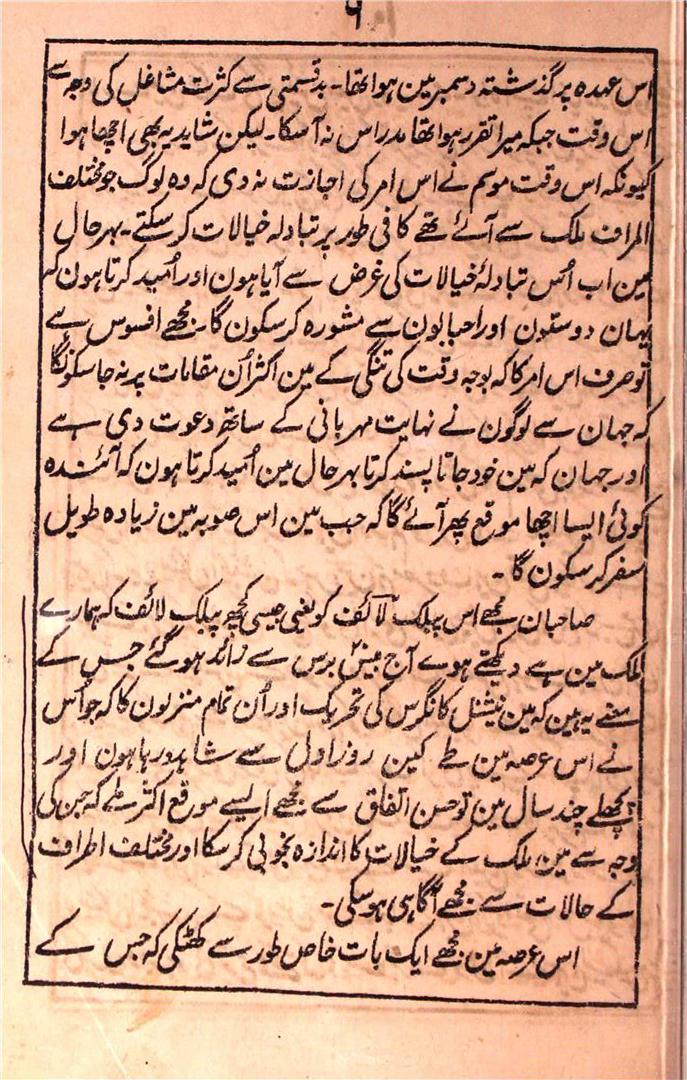 ۶
اس عہدہ پر گذشتہ دسمبر مین ہوا تھا۔ بدقسمتی سے کثرت مشاغل کی وجہ سے
اس وقت جبکہ میرا تقرر ہوا تھا مدراس نہ آسکا۔ لیکن شاید یہ بھی اچھا ہوا
کیونکہ اس وقت موسم نے اس امر کی اجازت نہ دی کہ وہ لوگ جو مختلف
اطراف ملک سے آئے تھے کافی طور پر تبادلہ خیالات کرسکتے۔ بہرحال
مین اب اُس تبادلۂ خیالات کی غرض سے آیا ہون اور اُمید کرتا ہون کہ
یہان دوستون اور احبابون سے مشورہ کرسکون گا۔ مجھے افسوس ہے
تو صرف اس امر کا کہ بوجہ وقت کی تنگی کے مین اکثر اُن مقامات پر نہ جا سکونگا
کہ جہان سے لوگون نے نہایت مہربانی کے ساتھ دعوت دی ہے
اور جہان کہ مین خود جانا پسند کرتا بہرحال مین اُمید کرتا ہون کہ آئندہ
کوئی ایسا اچھا موقع پھر آئے گا کہ جب مین اس صوبہ مین زیادہ طویل
سفر کرسکون گا۔
صاحبان مجھے اس پبلک لائف کو یعنی جیسی کچھ پبلک لائف کہ ہمارے
ملک مین ہے دیکھتے ہوے آج بیس برس سے زائد ہوگئے جس کے
معنے یہ ہین کہ مین نیشنل کانگرس کی تحریک اور اُن تمام منزلون کا کہ جو اُس
نے اس عرصہ مین طے کین روز اول سے شاہد رہا ہون اور
پچھلے چند سال مین تو حسن اتفاق سے مجھے ایسے موقع اکثر ملے کہ جن کی
وجہ سے مین ملک کے خیالات کا اندازہ بخوبی کرسکا اور مختلف اطراف
کے حالات سے مجھے آگاہی ہوسکی۔
اس عرصہ مین مجھے ایک بات خاص طور سے کھٹکی کہ جس کے